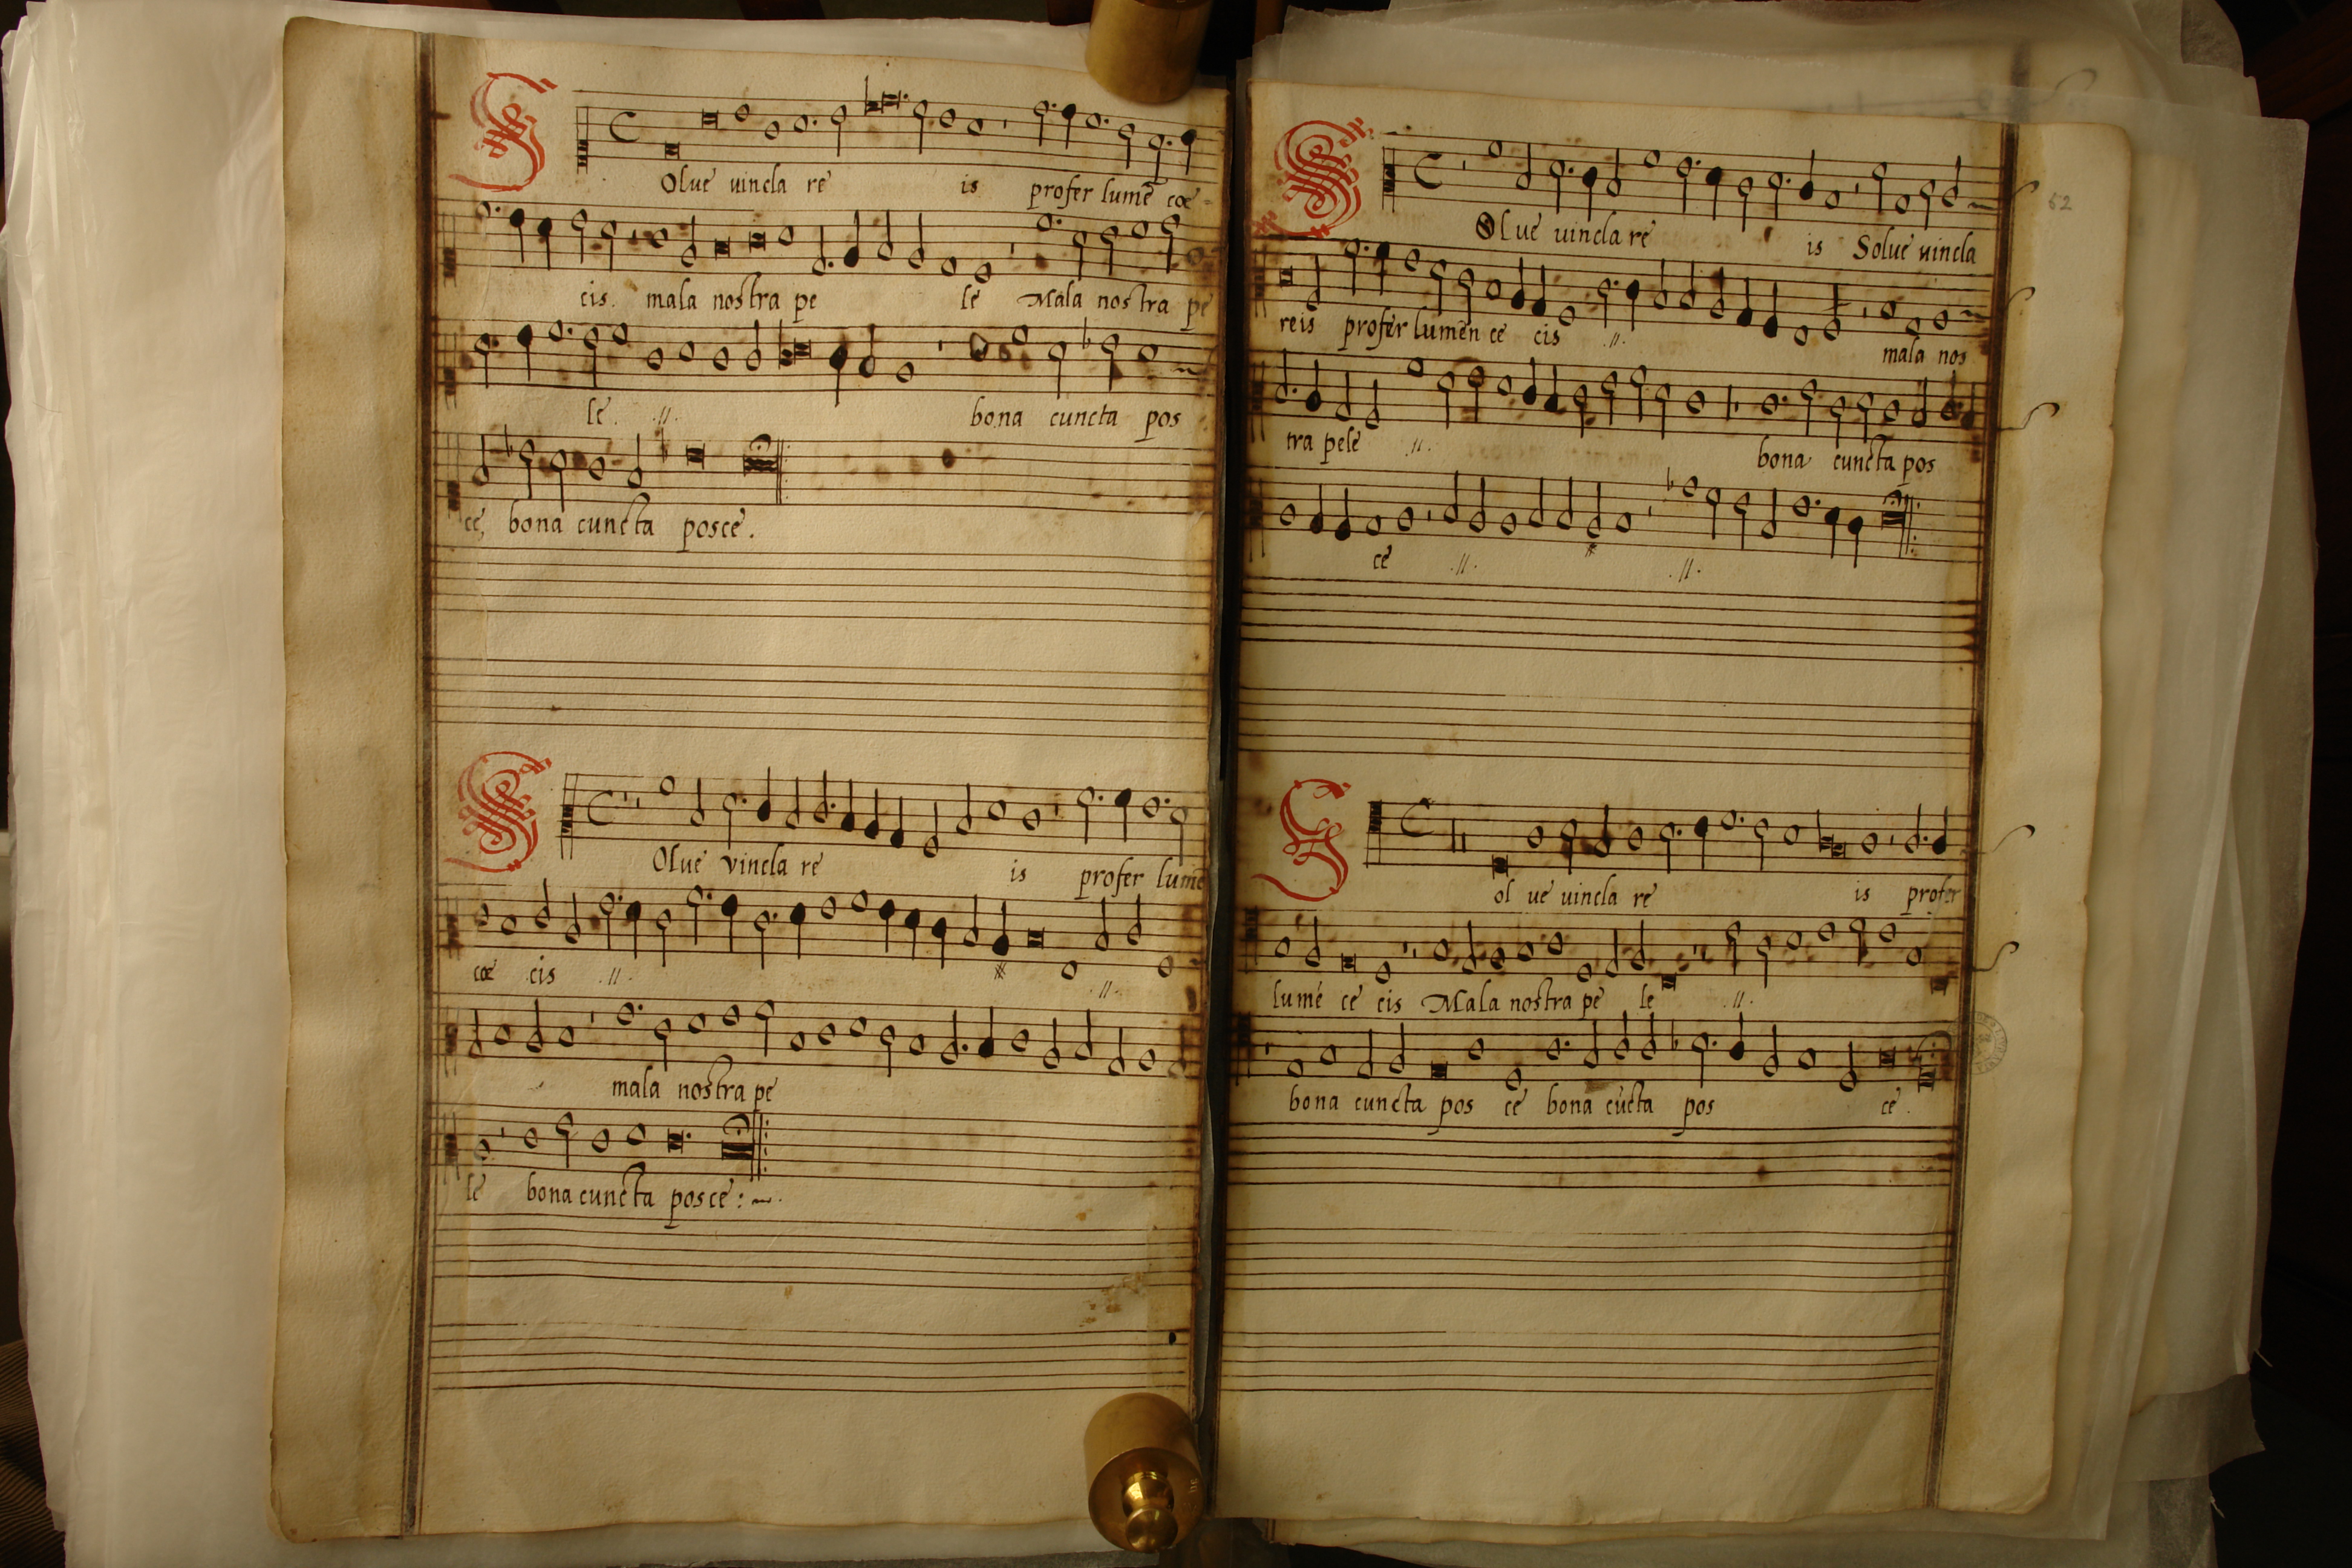 SOlue uincla re is profer lumē cœ
cis. mala nostra pe le Mala nostra pe
le .//. bona cuncta pos
ce, bona cuncta posce.
SOlue vincla re is profer lumē
cœ cis .//. .//.
mala nostra pe
le bona cuncta posce:~.
52
SOlue uincla re is Solue uincla
reis profer lumen ce cis .//. mala nos
tra pele .//. bona cuncta pos
ce .//. .//.
Sol ue uincla re is profer
lumē ce cis Mala nostra pe le .//.
bona cuncta pos ce bona cūcta pos ce.